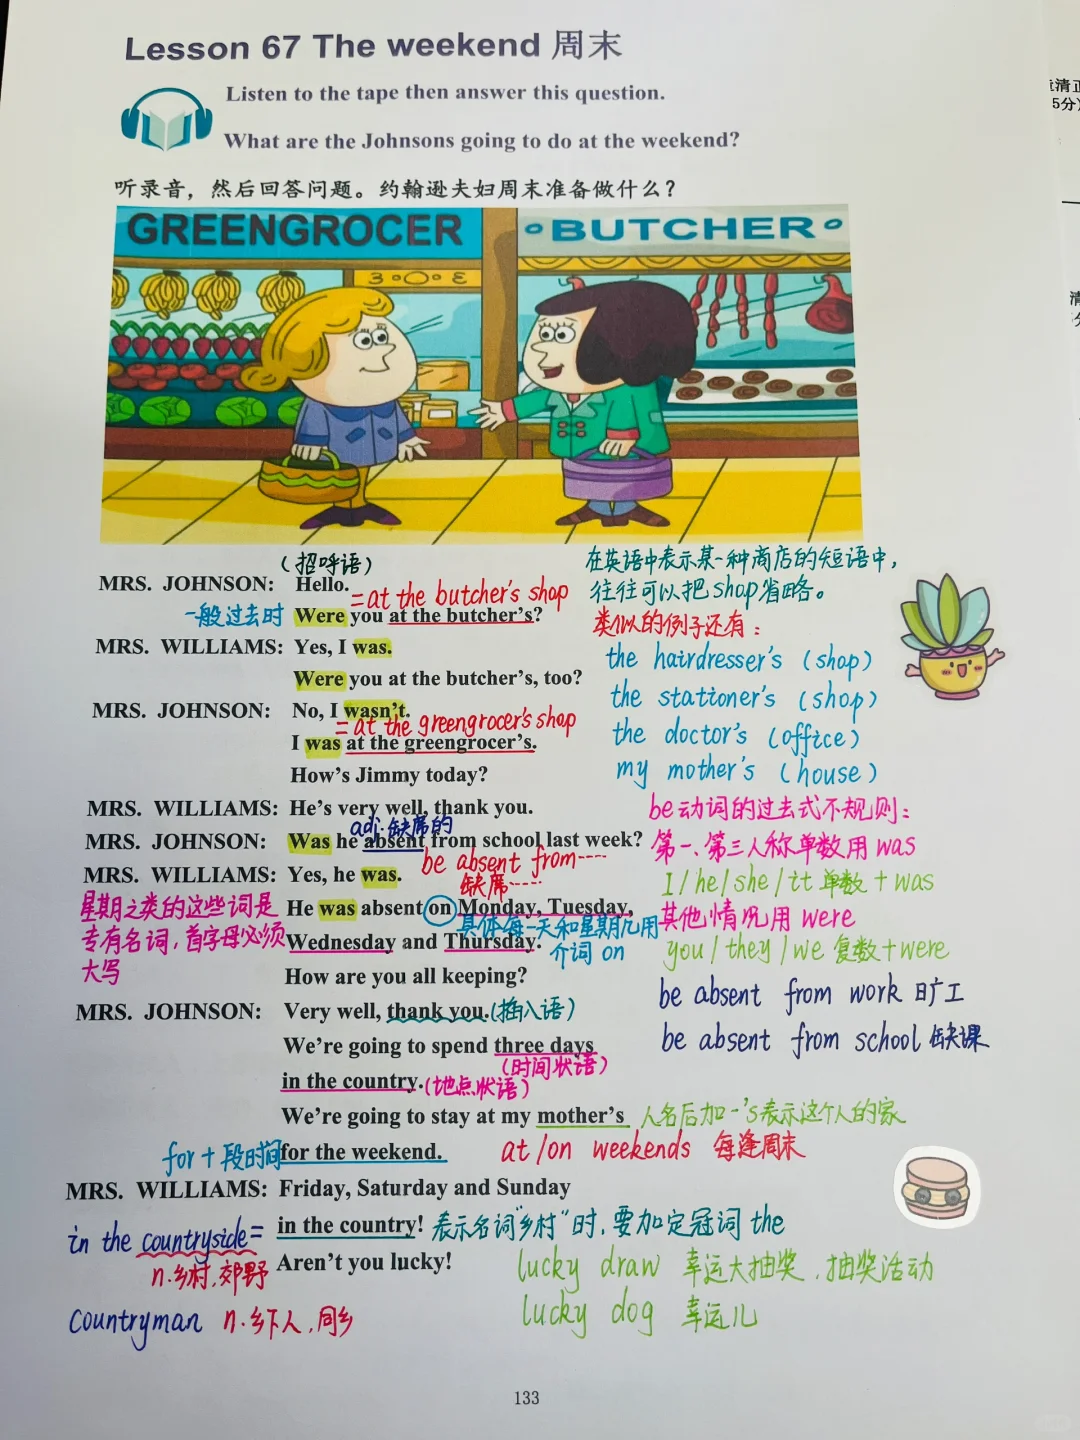 Lesson 67 The weekend 周末
Listen to the tape then answer this question.
What are the Johnsons going to do at the weekend?
听录音，然后回答问题。约翰逊夫妇周末准备做什么？
GREENGROCER
BUTCHER
（招呼语）
MRS. JOHNSON: Hello.
=at the butcher's shop
一般过去时 Were you at the butcher's?
MRS. WILLIAMS: Yes, I was.
Were you at the butcher's, too?
MRS. JOHNSON: No, I wasn't.
=at the greengrocer's shop
I was at the greengrocer's.
How's Jimmy today?
MRS. WILLIAMS: He's very well, thank you.
adj.缺席的
MRS. JOHNSON: Was he absent from school last week?
be absent from……
缺席……
MRS. WILLIAMS: Yes, he was.
He was absent on Monday, Tuesday,
具体每一天和星期几用
介词 on
Wednesday and Thursday.
星期之类的这些词是
专有名词，首字母必须
大写
How are you all keeping?
MRS. JOHNSON: Very well, thank you.(插入语)
We're going to spend three days
(时间状语)
in the country.(地点状语)
We're going to stay at my mother's 人名后加-'s表示这个人的家
for+段时间 for the weekend. at/on weekends 每逢周末
MRS. WILLIAMS: Friday, Saturday and Sunday
in the country! 表示名词“乡村”时，要加定冠词 the
Aren't you lucky!
in the countryside=
n.乡村，郊野
countryman n.乡下人，同乡
lucky draw 幸运大抽奖，抽奖活动
lucky dog 幸运儿
在英语中表示某一种商店的短语中，
往往可以把shop省略。
类似的例子还有：
the hairdresser's (shop)
the stationer's (shop)
the doctor's (office)
my mother's (house)
be动词的过去式不规则：
第一、第三人称单数用 was
I/he/she/it 单数+was
其他情况用 were
you/they/we 复数+were
be absent from work 旷工
be absent from school 缺课
133
清正
5分）
清